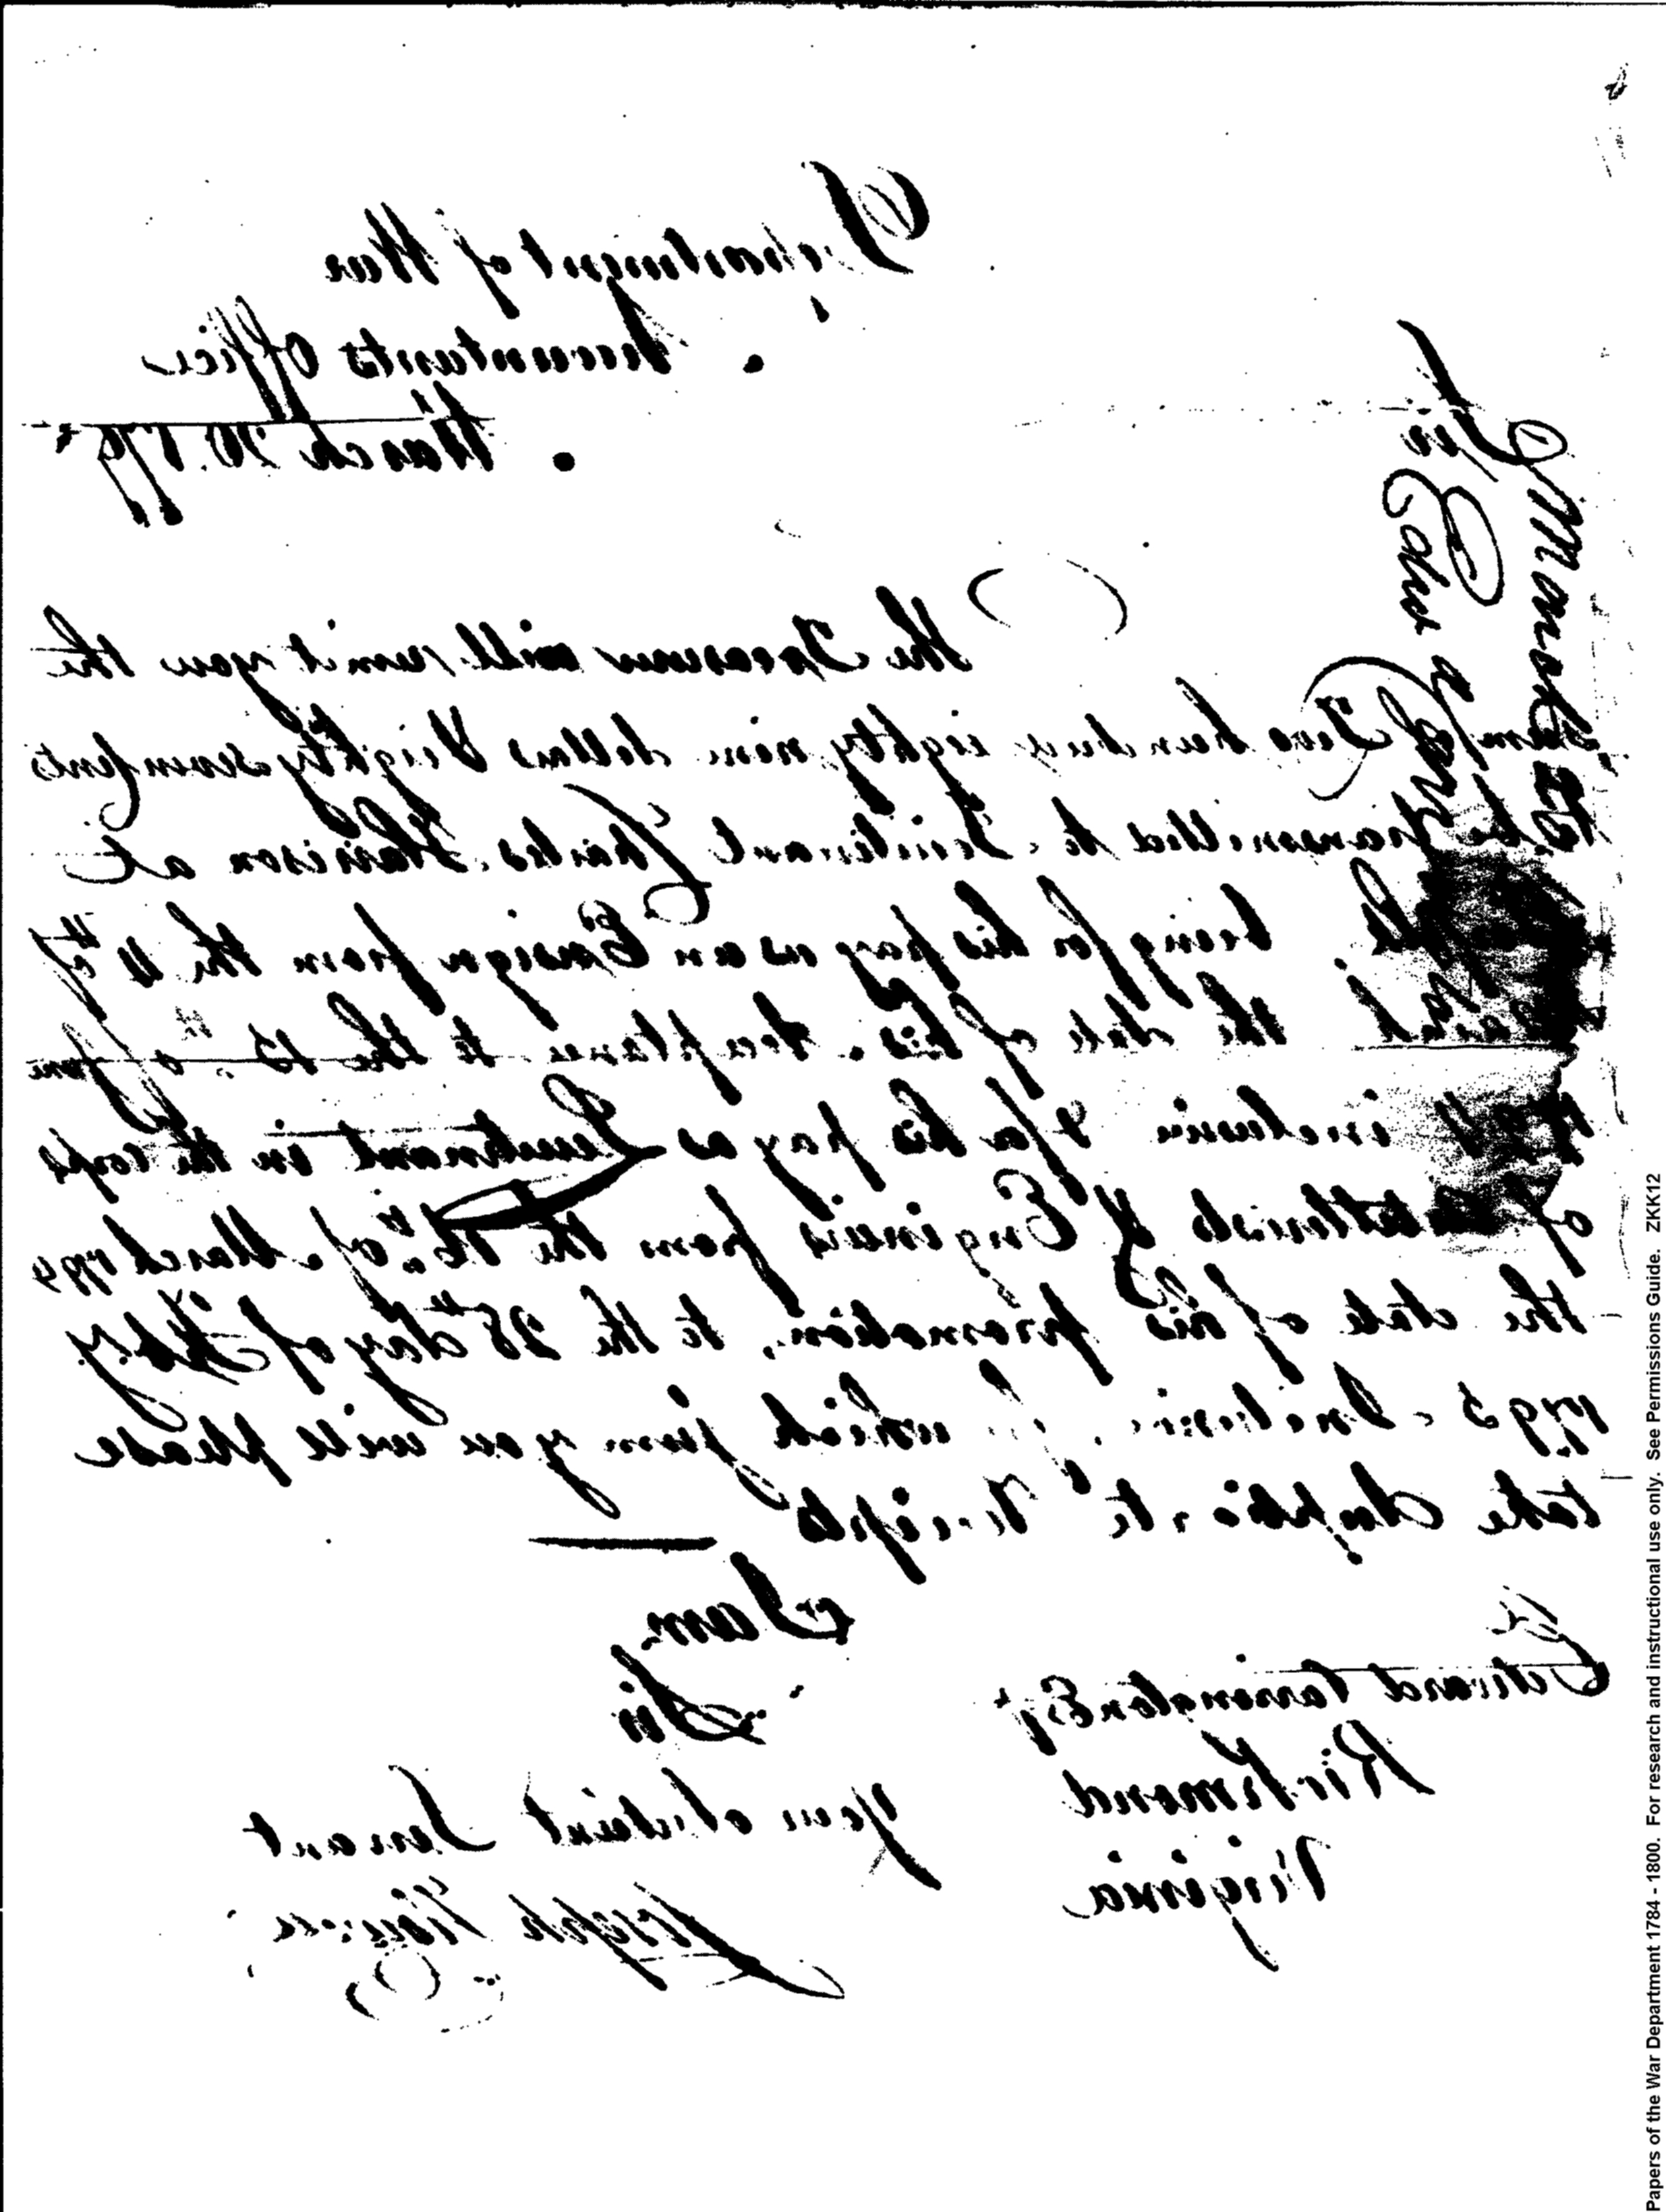 Department of War
Accountants Office
March 30. 179
Sir
The Treasurer will remit you the
Sum of Two hundred eighty nine dollars & eighty seven Cents
to be transmitted to Lieutenant Charles Harrison at
being for his pay as an Ensign from the 11th of
March the date of his Acceptance to the 15th of June
1794 inclusive & for his pay as Lieutenant in the corps
of Artillerists & Engineers from the 16th of March 1794
the date of his promotion, to the 28th day of Feby.
1795 Inclusive, for which sum you will please
take duplicate receipts
I am,
Sir
Your obedient Servant
Joseph Howell
Edward Carrington Esqr
Richmond
Virginia
Papers of the War Department 1784 - 1800. For research and instructional use only. See Permissions Guide. ZKK12